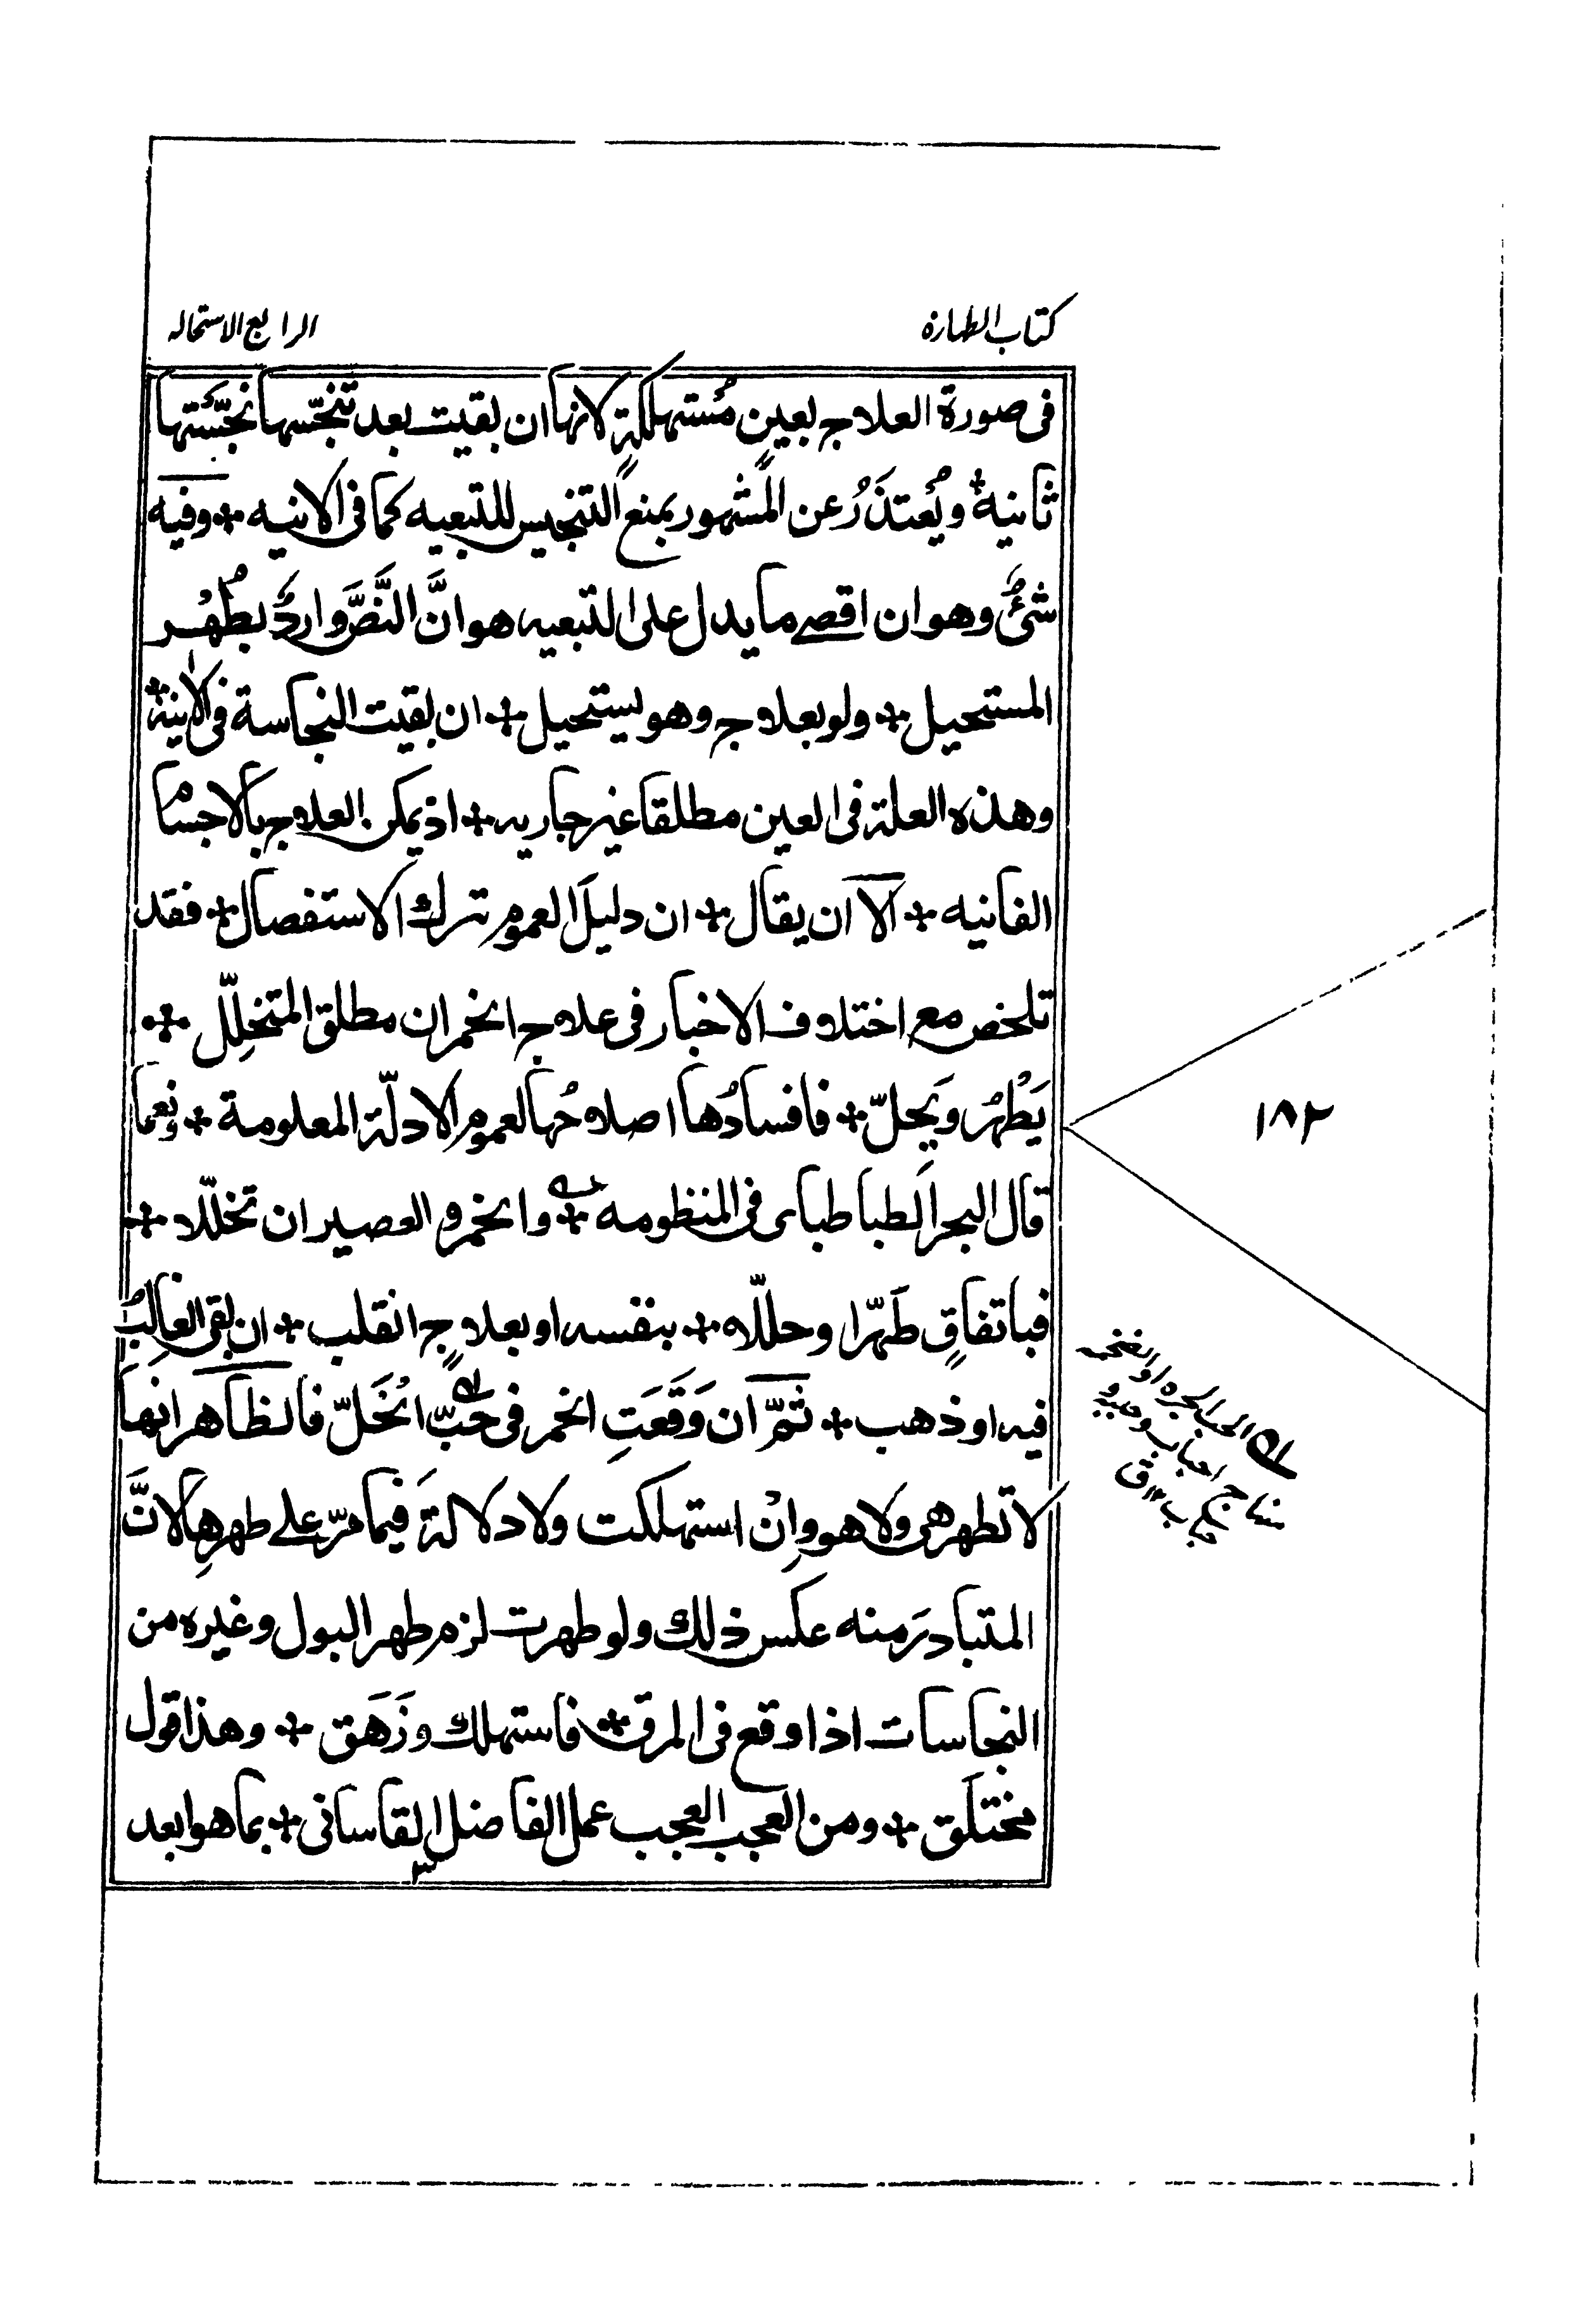 كتاب الطهارة
الرابع الاستحاله
فى صورة العلاج بعينٍ مُستهلكةٍ لانها ان بقيت بعد تنجّسها نجّستها
ثانيةً ويُعتذَرُ عن المشهور بمنع التنجيس للتبعيه كما فى الانيه ✣ وفيه
شئٌ وهو ان اقصے ما يدل على التبعيه هو انَّ النَّصَّ واردٌ بطُهْر
المستحيل ✣ ولو بعلاج وهو يستحيل ✣ ان بقيت النجاسة فى الانيةِ
وهذه العلة فى العين مطلقا غير جاريه ✣ اذ يمكن العلاج بالاجسام
الفانيه ✣ الّا ان يقال ✣ ان دليلَ العموم ترك الاستفصال ✣ فقد
تلخص مع اختلاف الاخبار فى علاج الخمر ان مطلق المتخلِّل ✣
يَطْهُر ويَحلّ ✣ فافسادُها اصلاحُها لعموم الادلّة المعلومة ✣ ونِعما
قال البحر الطباطباى فى المنظومه ✣ والخمر والعصير ان تخلّلا ✣
فباتفاقٍ طَهّرا وحلّلا ✣ بنفسه او بعلاجٍ انقلب ✣ ان بقى الغالِبُ
فيه او ذهب ✣ ثمّ ان وَقَعَتِ الخمر فى حُبّ الخَلّ فالظاهر انها
لا تطهر هى ولا هو وإنْ استهلكت ولا دلالةَ فيما مرّ علے طهرِها لانَّ
المتبادرَ منه عكس ذلك ولو طهرت لزم طهر البول وغيره من
النجاسات اذا وقع فى المرق ✣ فاستهلك وزَهَق ✣ وهذا قول
مختلَق ✣ ومن العجب العجب عمل الفاضل القاسانى ✣ بما هو ابعد
١٨٢
الحب الجره او الضخمه
منها ج احباب وحببه و
حباب ١٢ ق